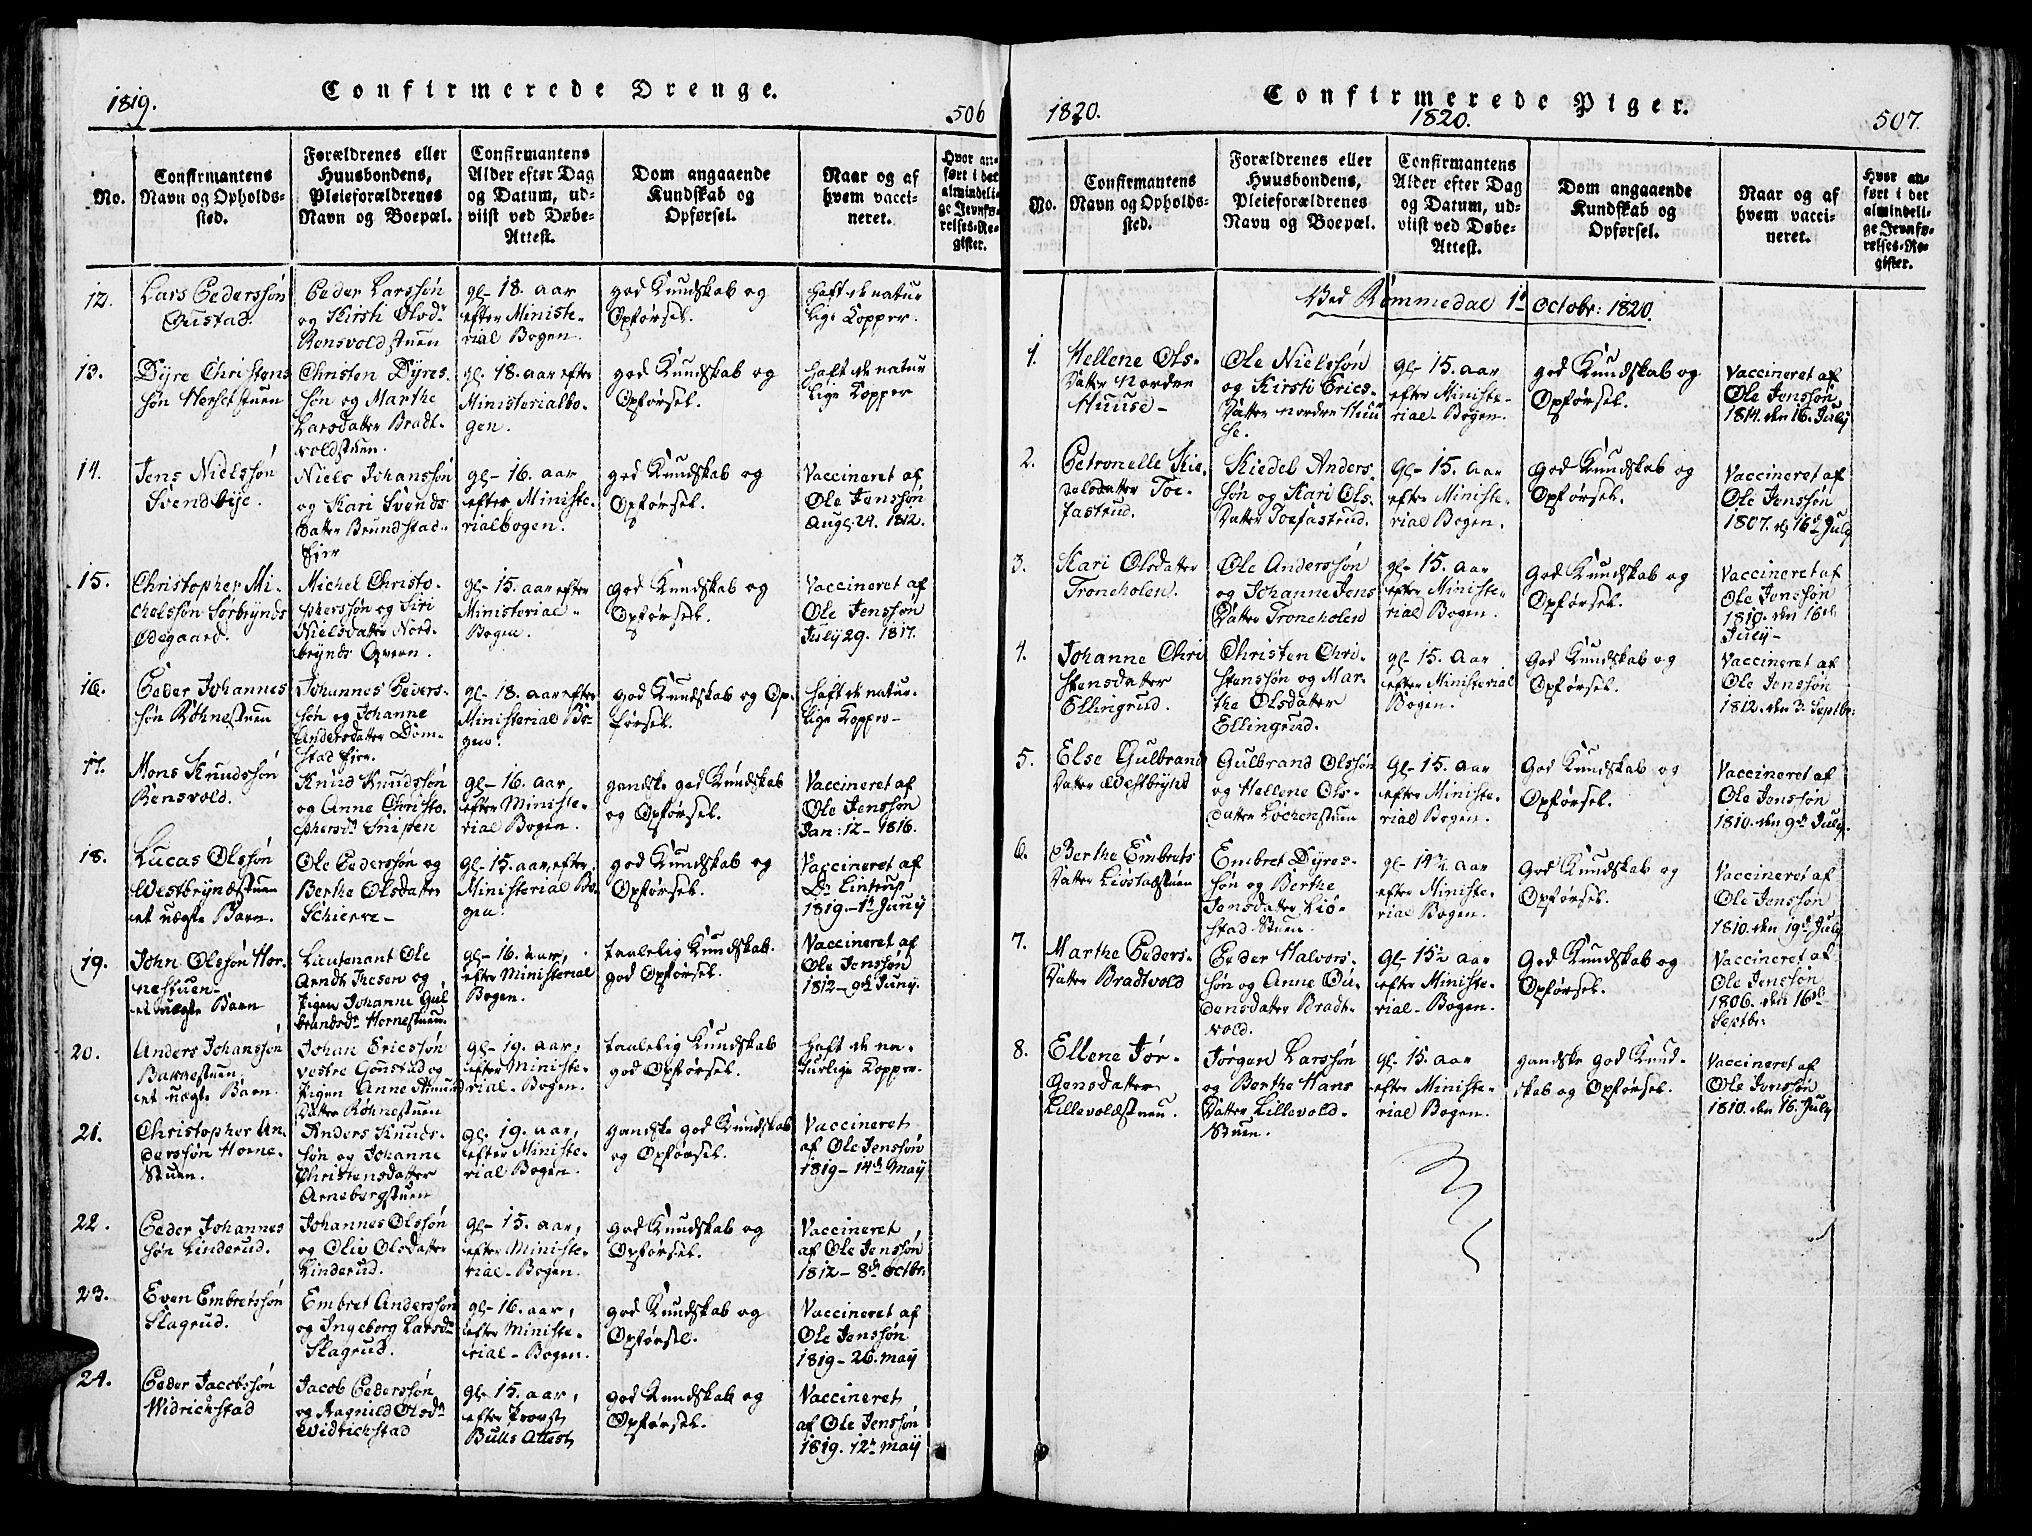 1819.
Confirmerede Drenge.
506
No.
Confirmantens
Navn og Opholds-
sted.
Forældrenes eller
Huusbondens,
Pleieforældrenes
Navn og Boepæl.
Confirmantens
Alder efter Dag
og Datum, ud-
viist ved Døbe-
Attest.
Dom angaaende
Kundskab og
Opførsel.
Naar og af
hvem vacci-
neret.
Hvor an-
ført i det
almindeli-
ge Jevnfø-
relses-Re-
gister.
12.
Lars Pedersøn
Gustad.
Peder Larssøn
og Kirsti Olsd.
Rensvoldstuen
gl- 18. aar
efter Ministe-
rial Bogen.
god Kundskab og
Opførsel.
haft de natur
lige Kopper.
13.
Dyre Christens
søn Hersetstuen
Christen Dyres-
søn og Marthe
Larsdatter Bradt-
voldstuen.
gl- 18. aar efter
Ministerialbo-
gen.
god Kundskab og
Opførsel.
haft de natur
lige Kopper
14.
Jens Nielssøn
Svendbye.
Niels Johanssøn
og Kari Svends
datter Brundstad-
Ejer
gl- 16. aar
efter Ministe-
rialbogen.
god Kundskab og
Opførsel.
Vaccineret af
Ole Jenssøn
Aug. 24. 1812.
15.
Christopher Mi-
chelssøn Sørbrynds
Ødegaard.
Michel Christo-
pherssøn og Siri
Nielsdatter Nord-
brynds Qvern.
gl- 15. aar efter
Ministerial-
Bogen.
god Kundskab og
Opførsel.
Vaccineret af
Ole Jenssøn
July 29. 1817.
16.
Peder Johannes
søn Røhnestuen
Johannes Peders-
søn og Johanne
Andersdatter Dom-
stad Ejer.
gl- 18. aar efter
Ministerial Bo-
gen.
god Kundskab og Op-
førsel.
haft de natur-
lige Kopper-
17.
Mons Knudssøn
Rensvold.
Knud Knudssøn
og Anne Christo-
phersd. Snipen
gl- 16. aar,
efter Ministe-
rial Bogen.
gandske god Kundskab
og Opførsel.
Vaccineret af
Ole Jenssøn
Jan: 12- 1816.
18.
Lucas Olssøn
Westbryndstuen
et uægte Barn.
Ole Pederssøn og
Berthe Olsdatter
Schierre-
gl- 15. aar, efter
Ministerial Bo-
gen.
god Kundskab og
Opførsel.
Vaccineret af
Dr. Lintrup
1819.- 1ste Juny
19.
John Olssøn Hor-
nestuen-
et uægte Barn
Lieutenant Ole
Arndt Ihesen og
Pigen Johanne Gul
brandsd. Hornestuen.
gl- 16. aar,
efter Ministerial
Bogen.
taalelig Kundskab.
god Opførsel.
Vaccineret af
Ole Jenssøn
1812- 9de Juny.
20.
Anders Johanssøn
Bakkestuen.
et uægte Barn.
Johan Ericssøn
vestre Gonstad og
Pigen Anne Amund
datter Røhnestuen
gl- 19. aar,
efter Ministe-
rial- Bogen.
taalelig Kundskab
god Opførsel.
haft de na-
turlige Kopper.
21.
Christopher An-
derssøn Horne-
Stuen.
Anders Knuds-
søn og Johanne
Christensdatter
Arnebergstuen
gl. 19. aar,
efter Ministe-
rial Bogen.
gandske god Kundskab
og Opførsel.
Vaccineret
af Ole Jenssøn
1819- 14de May
22.
Peder Johannes
søn Linderud.
Johannes Olssøn
og Oliv Olsdatter
Linderud.
gl- 15. aar,
efter Ministe-
rial- Bogen.
god Kundskab og
Opførsel.
Vaccineret
af Ole Jenssøn
1812- 8de Octbr.
23.
Even Embretssøn
Slagrud.
Embret Anderssøn
og Ingeborg Larsd.
Slagrud.
gl- 16. aar,
efter Ministe-
rial- Bogen.
god Kundskab og
Opførsel.
Vaccineret af
Ole Jenssøn
1819- 26. may
24.
Peder Jacobssøn
Widrichstad
Jacob Pederssøn
og Ragnild Olsd.
Widrichstad
gl- 15. aar,
efter Provst
Bulls Attest
god Kundskab og
Opførsel.
Vaccineret
af Ole Jenssøn
1819. 12te may
1820.
Confirmerede Piger.
1820.
507.
No.
Confirmantens
Navn og Opholds-
sted.
Forældrenes eller
Huusbondens,
Pleieforældrenes
Navn og Boepæl.
Confirmantens
Alder efter Dag
og Datum, ud-
viist ved Døbe-
Attest.
Dom angaaende
Kundskab og
Opførsel.
Naar og af
hvem vacci-
neret.
Hvor an-
ført i det
almindeli-
ge Jevnfø-
relses-Re-
gister.
Ved Rommedal 1ste Octobr: 1820.
1.
Hellene Ols-
datter Nordre
Huuse-
Ole Nielssøn
og Kirsti Erics-
datter nordre Huu
se.
gl- 15. aar
efter Ministe-
rial- Bogen.
god Kundskab og
Opførsel.
Vaccineret af
Ole Jenssøn
1814. den 16. July
2.
Petronelle Kie-
delsdatter Toe-
fastrud.
Kiedel Anders-
søn og Kari Ols-
datter Toefastrud.
gl- 15. aar
efter Ministe-
rial Bogen.
God Kundskab og
Opførsel.
Vaccineret af
Ole Jenssøn
1807. d. 16de July
3.
Kari Olsdatter
Troneholen.
Ole Anderssøn
og Johanne Jens
datter Troneholen
gl- 15. aar
efter Ministe-
rial Bogen.
God Kundskab og
Opførsel.
Vaccineret af
Ole Jenssøn
1810. den 16de
July-
4.
Johanne Chri
stensdatter
Ellingrud.
Christen Chri-
stenssøn og Mar-
the Olsdatter
Ellingrud.
gl- 15. Aar
efter Ministerial
Bogen.
God Kundskab og
Opførsel.
Vaccineret af
Ole Jenssøn
1812. den 3. Septbr:
5.
Else Gulbrand
datter Westbrynd
Gulbrand Olssøn
og Hellene Ols-
datter Løchenstuen
Gl- 15. aar
efter Ministe-
rial Bogen.
God Kundskab og
Opførsel.
Vaccineret af
Ole Jenssøn
1810. den 9de July.
6.
Berthe Embrets
datter Liøstadstuen
Embret Dyres-
søn og Berthe
Jensdatter Liø-
stad Stuen.
gl- 14½ aar
efter Ministe-
rial Bogen.
God Kundskab og
Opførsel.
Vaccineret af
Ole Jenssøn
1810. den 19de July
7.
Marthe Peders-
datter Bradtvold
Peder Halvors-
søn og Anne Gu-
densdatter Bradt-
vold.
Gl- 15½ aar
efter Ministe-
rial- Bogen.
God Kundskab og
Opførsel.
Vaccineret af
Ole Jenssøn
1806. den 16de
Septbr.
8.
Ellene Jør-
gensdatter
Lillevoldstuen.
Jørgen Larssøn
og Berthe Hans
datter Lillevold-
Stuen.
gl- 15 aar
efter Ministe-
rial Bogen.
gandske god Kund-
skab og Opførsel.
Vaccineret af
Ole Jenssøn
1810. den 16. July